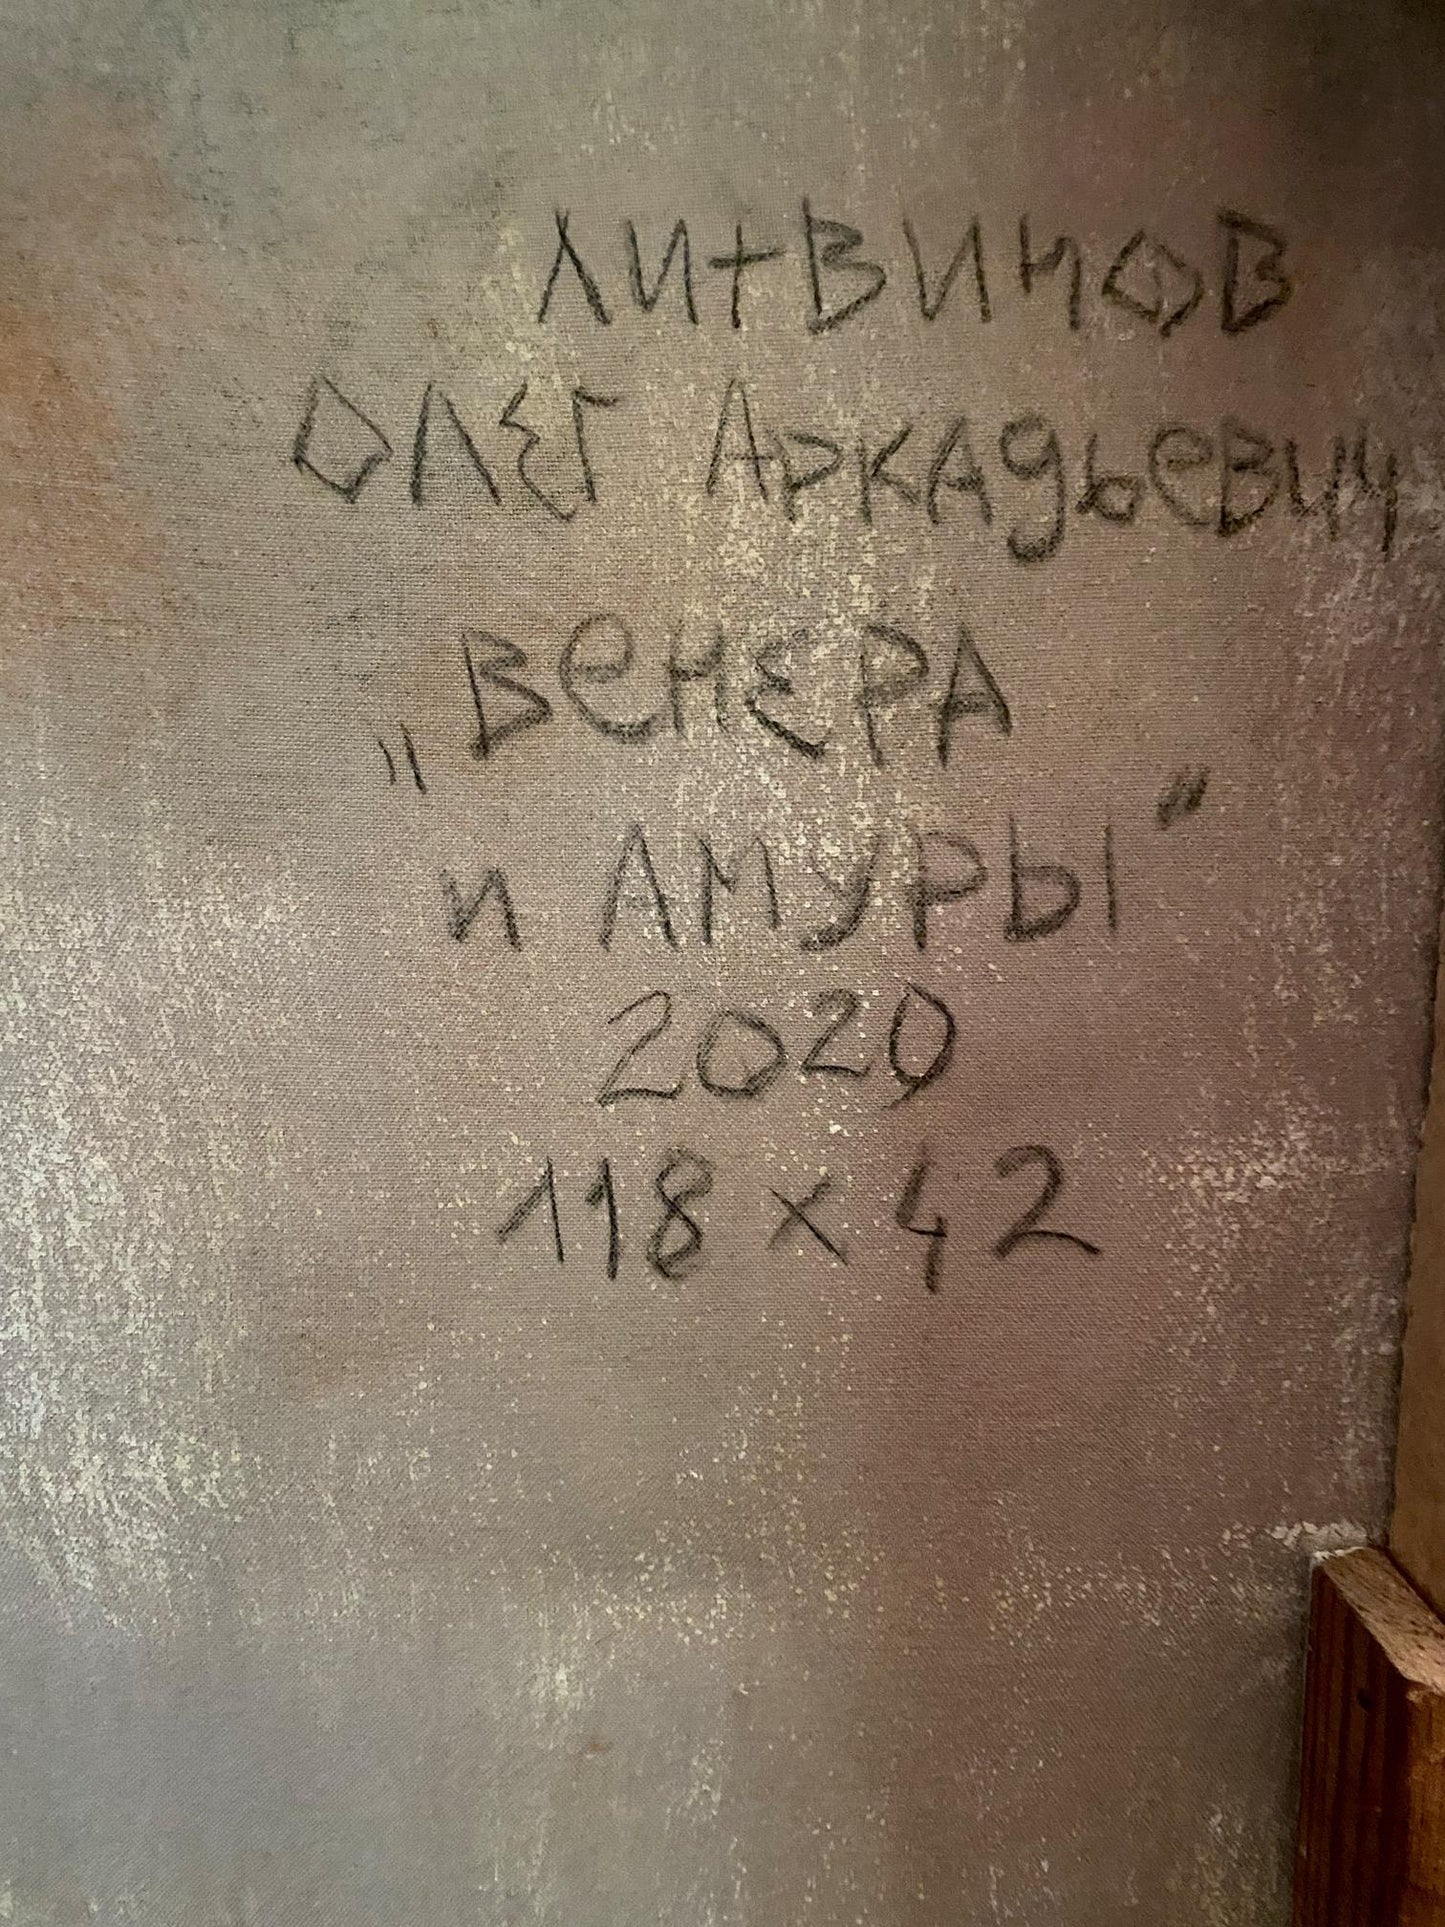 Литвинов
Олег Аркадьевич
„Венера
и Амуры“
2020
118 x 42